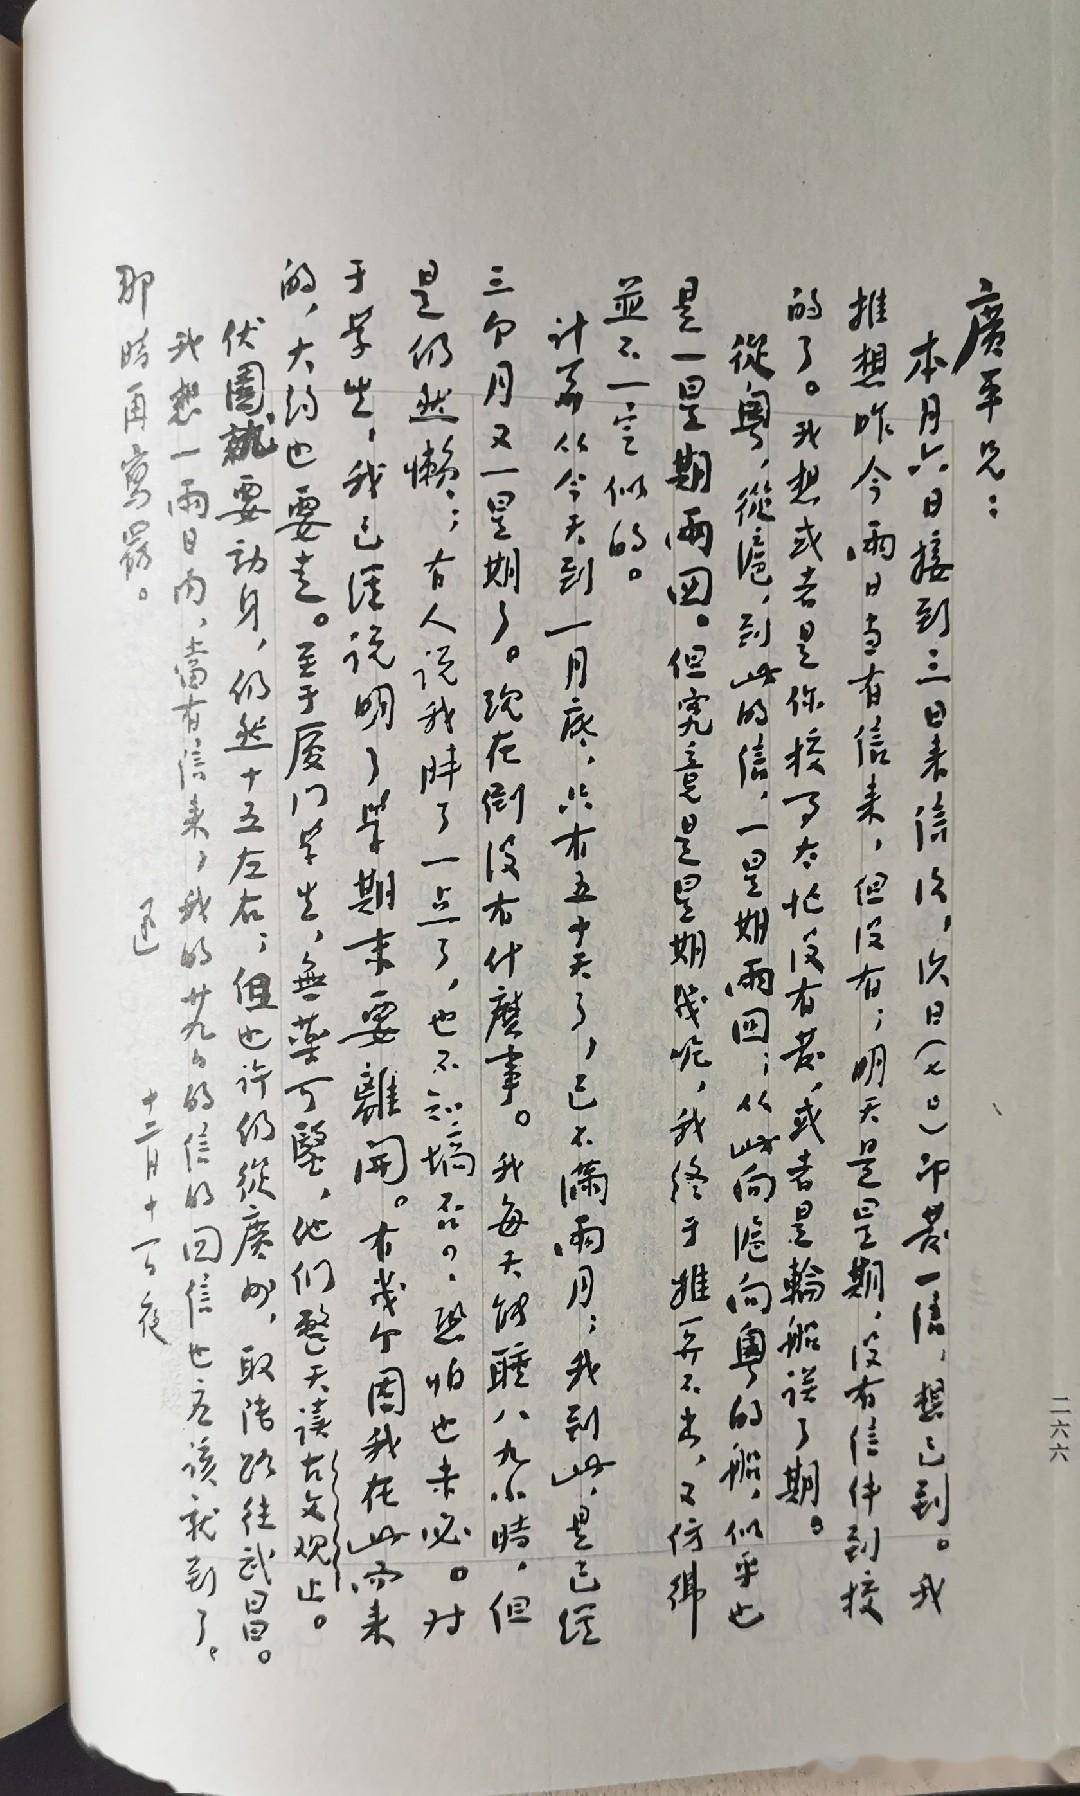 廣平兄：
本月六日接到三日来信後，次日（七日）即发一信，想已到。我
推想昨今兩日当有信来，但没有；明天是星期，没有信件到校
的了。我想或者是你校事太忙没有发，或者是輪船误了期。
從粵，從滬，到此的信，一星期兩回；从此向滬向粵的船，似乎也
是一星期兩回。但究竟是星期幾呢，我终于推算不出，又仿彿
並不一定似的。
计算从今天到一月底，只有五十天了，已不滿兩月；我到此，是已经
三个月又一星期了。现在倒没有什麼事。我每天能睡八九小時，但
是仍然懒；有人说我胖了一点了，也不知確否？恐怕也未必。对
于学生，我已经说明了学期末要離開。有幾个因我在此而来
的，大约也要走。至于厦门学生，無药可醫，他们整天读古文观止。
伏園就要动身，仍然十五左右；但也许仍從廣州，取陸路往武昌。
我想一兩日内，當有信来，我的廿九日的信的回信也应该就到了。
那時再寫罢。
迅
十二月十一日夜
二六六